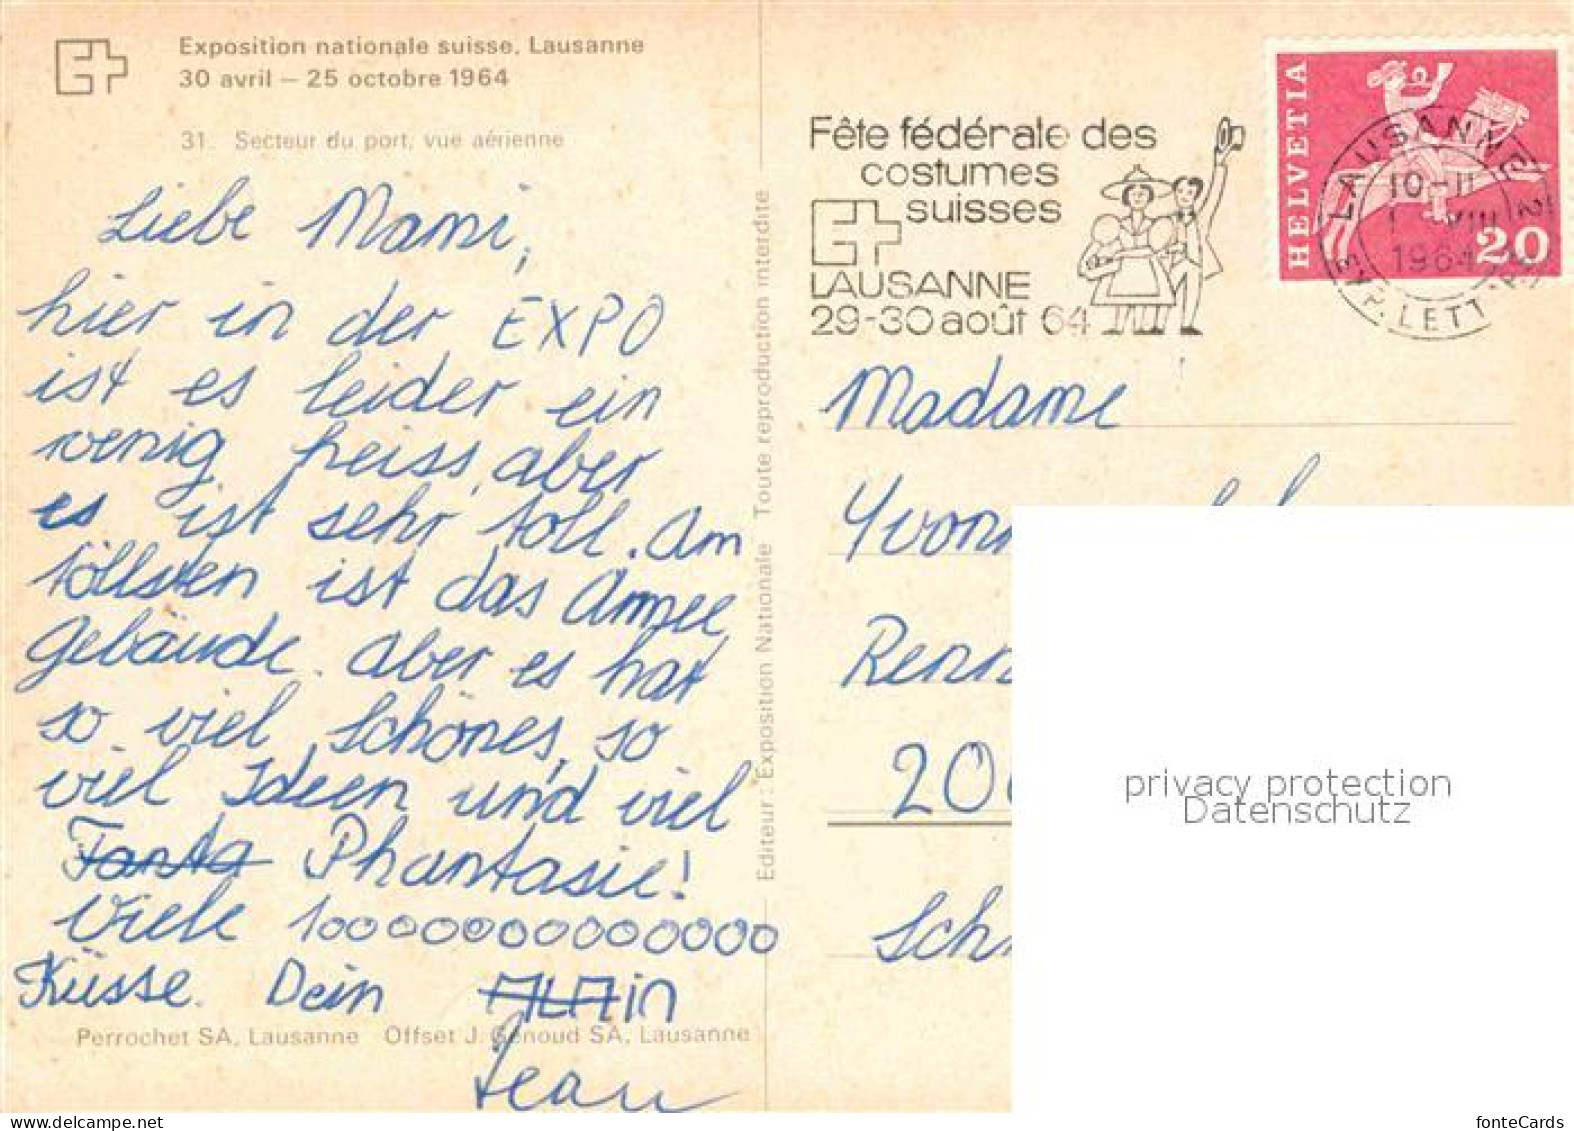 Exposition nationale suisse, Lausanne
30 avril – 25 octobre 1964
31. Secteur du port, vue aérienne
Liebe Mami,
hier in der EXPO
ist es leider ein
wenig heiss, aber
es ist sehr toll. Am
töllsten ist das Armee
gebäude. Aber es hat
so viel schönes, so
viel Ideen und viel
Fanta Phantasie!
Viele 10000000000000
Küsse. Dein
Jean
Perrochet SA, Lausanne Offset J. Genoud SA, Lausanne
Editeur: Exposition Nationale Toute reproduction interdite
Fête fédérale des
costumes
suisses
LAUSANNE
29-30 août 64
HELVETIA
20
LAUSANNE 2
10-11
VIII
1964
LETT
Madame
Renn
200
Sch
privacy protection
Datenschutz
fonteCards